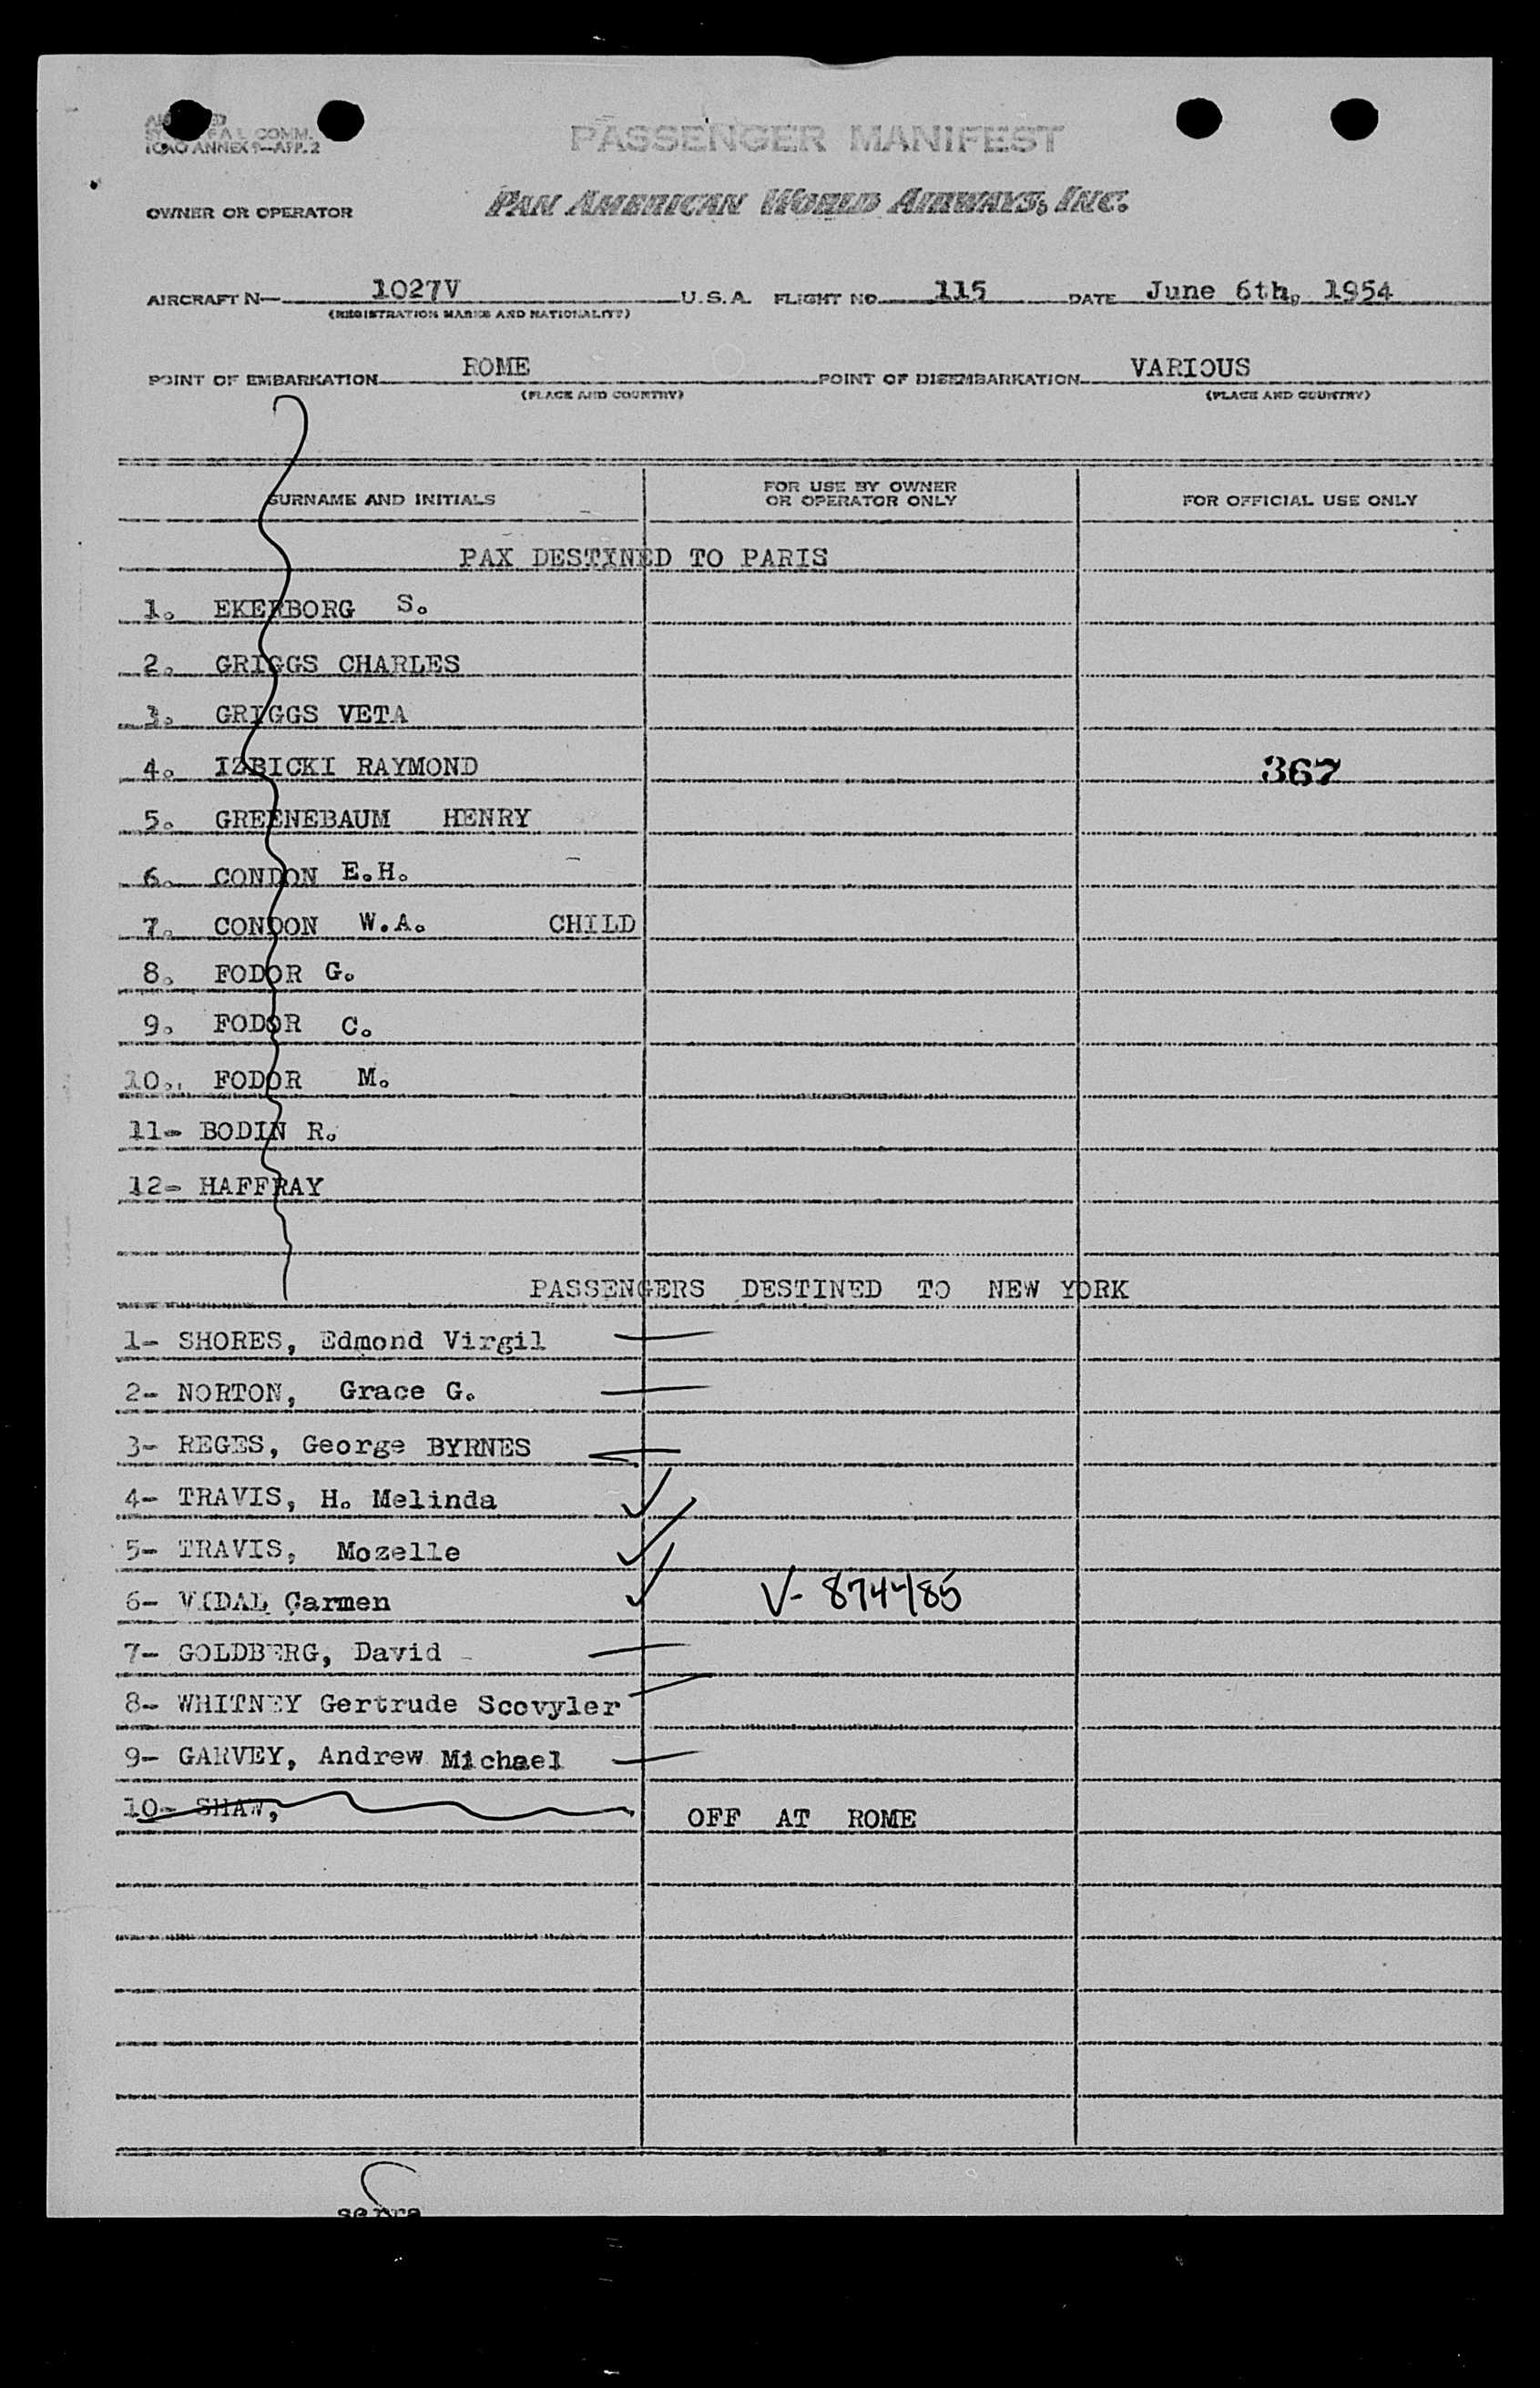 PASSENGER MANIFEST
COMM.
ICAO ANNEX 9—APP. 2
OWNER OR OPERATOR PAN AMERICAN WORLD AIRWAYS, INC.
AIRCRAFT N— 1027V U.S.A. FLIGHT NO. 115 DATE June 6th, 1954
(REGISTRATION MARKS AND NATIONALITY)
POINT OF EMBARKATION ROME POINT OF DISEMBARKATION VARIOUS
(PLACE AND COUNTRY) (PLACE AND COUNTRY)
SURNAME AND INITIALS FOR USE BY OWNER OR OPERATOR ONLY FOR OFFICIAL USE ONLY
PAX DESTINED TO PARIS
1. EKERBORG S.
2. GRIGGS CHARLES
3. GRIGGS VETA
4. IZBICKI RAYMOND 367
5. GREENEBAUM HENRY
6. CONDON E.H.
7. CONDON W.A. CHILD
8. FODOR G.
9. FODOR C.
10. FODOR M.
11- BODIN R.
12- HAFFRAY
PASSENGERS DESTINED TO NEW YORK
1- SHORES, Edmond Virgil
2- NORTON, Grace G.
3- REGES, George BYRNES
4- TRAVIS, H. Melinda
5- TRAVIS, Mozelle
6- VIDAL Carmen V- 874485
7- GOLDBERG, David -
8- WHITNEY Gertrude Scovyler
9- GARVEY, Andrew Michael
10- SHAW, OFF AT ROME